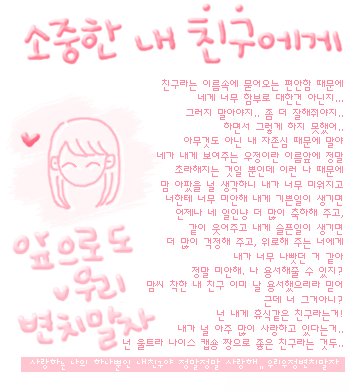 소중한 내 친구에게
친구라는 이름속에 묻어오는 편안함 때문에
네게 너무 함부로 대한건 아닌지...
그러지 말아야지.. 좀 더 잘해줘야지..
하면서 그렇게 하지 못했어..
아무것도 아닌 내 자존심 때문에 말야
네가 내게 보여주는 우정이란 이름앞에 정말
초라해지는 것일 뿐인데 이런 나 때문에
맘 아팠을 널 생각하니 내가 너무 미워지고
너한테 너무 미안해 내게 기쁜일이 생기면
언제나 네 일인냥 더 많이 축하해 주고,
같이 웃어주고 내게 슬픈일이 생기면
더 많이 걱정해 주고, 위로해 주는 너에게
내가 너무 나빴던 거 같아
정말 미안해. 나 용서해줄 수 있지?
맘씨 착한 내 친구 이미 날 용서했으리라 믿어
근데 너 그거아니?
넌 내게 휴식같은 친구라는거!
내가 널 아주 많이 사랑하고 있다는거..
넌 울트라 나이스 캡숑 짱으로 좋은 친구라는 것두..
앞으로도
우리
변치말자
사랑하는 나의 하나뿐인 내친구야 정말정말 사랑해 우리우정변치말자